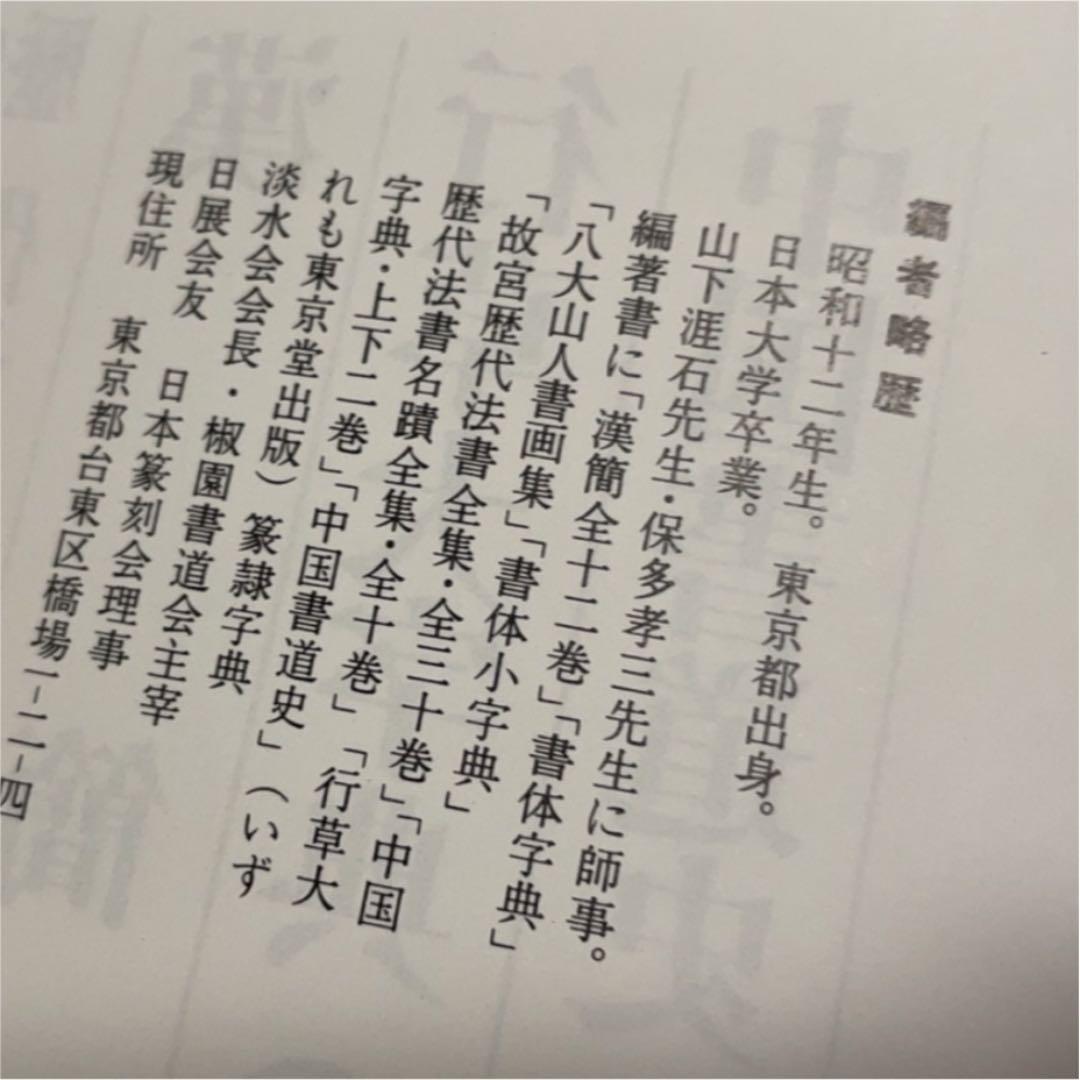 編者略歴
昭和十二年生。 東京都出身。
日本大学卒業。
山下涯石先生・保多孝三先生に師事。
編著書に「漢簡全十二巻」「書体字典」
「八大山人書画集」「書体小字典」
「故宮歴代法書全集・全三十巻」「中国
歴代法書名蹟全集・全十巻」「行草大
字典・上下二巻」「中国書道史」（いず
れも東京堂出版）篆隷字典
淡水会会長・椒園書道会主宰
日展会友 日本篆刻会理事
現住所 東京都台東区橋場一-二-四